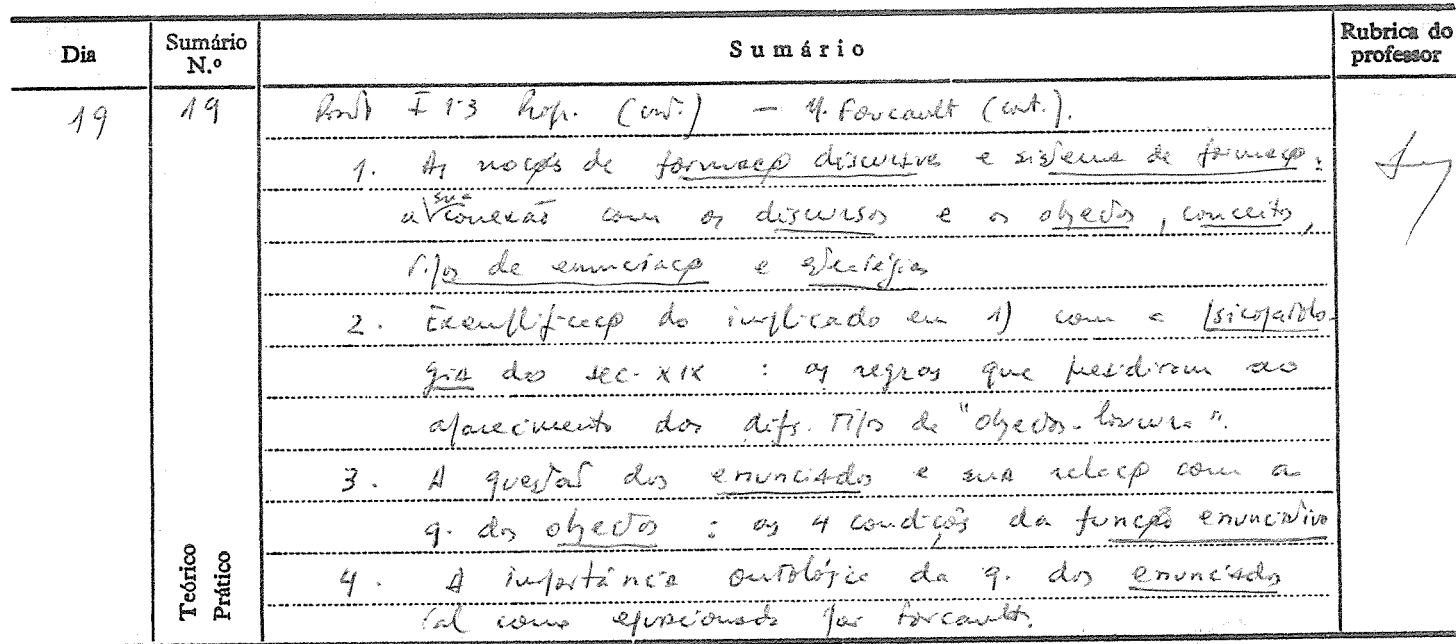 Dia Sumário N.º Sumário Rubrica do professor
19 19 I 1-3 Prop. (cont.) — M. Foucault (cont.).
1. As noções de formação discursiva e sistema de formação:
a sua conexão com os discursos e os objectos, conceitos,
tipos de enunciação e estratégias
2. Exemplificação do implicado em 1) com a psicopatolo-
gia do sec. XIX : as regras que presidiram ao
aparecimento dos difs. tipos de "objectos-loucura".
3. A questão dos enunciados e sua relação com a
q. dos objectos : as 4 condições da função enunciativa
4. A importância ontológica da q. dos enunciados
tal como equacionada por Foucault.
Teórico
Prático